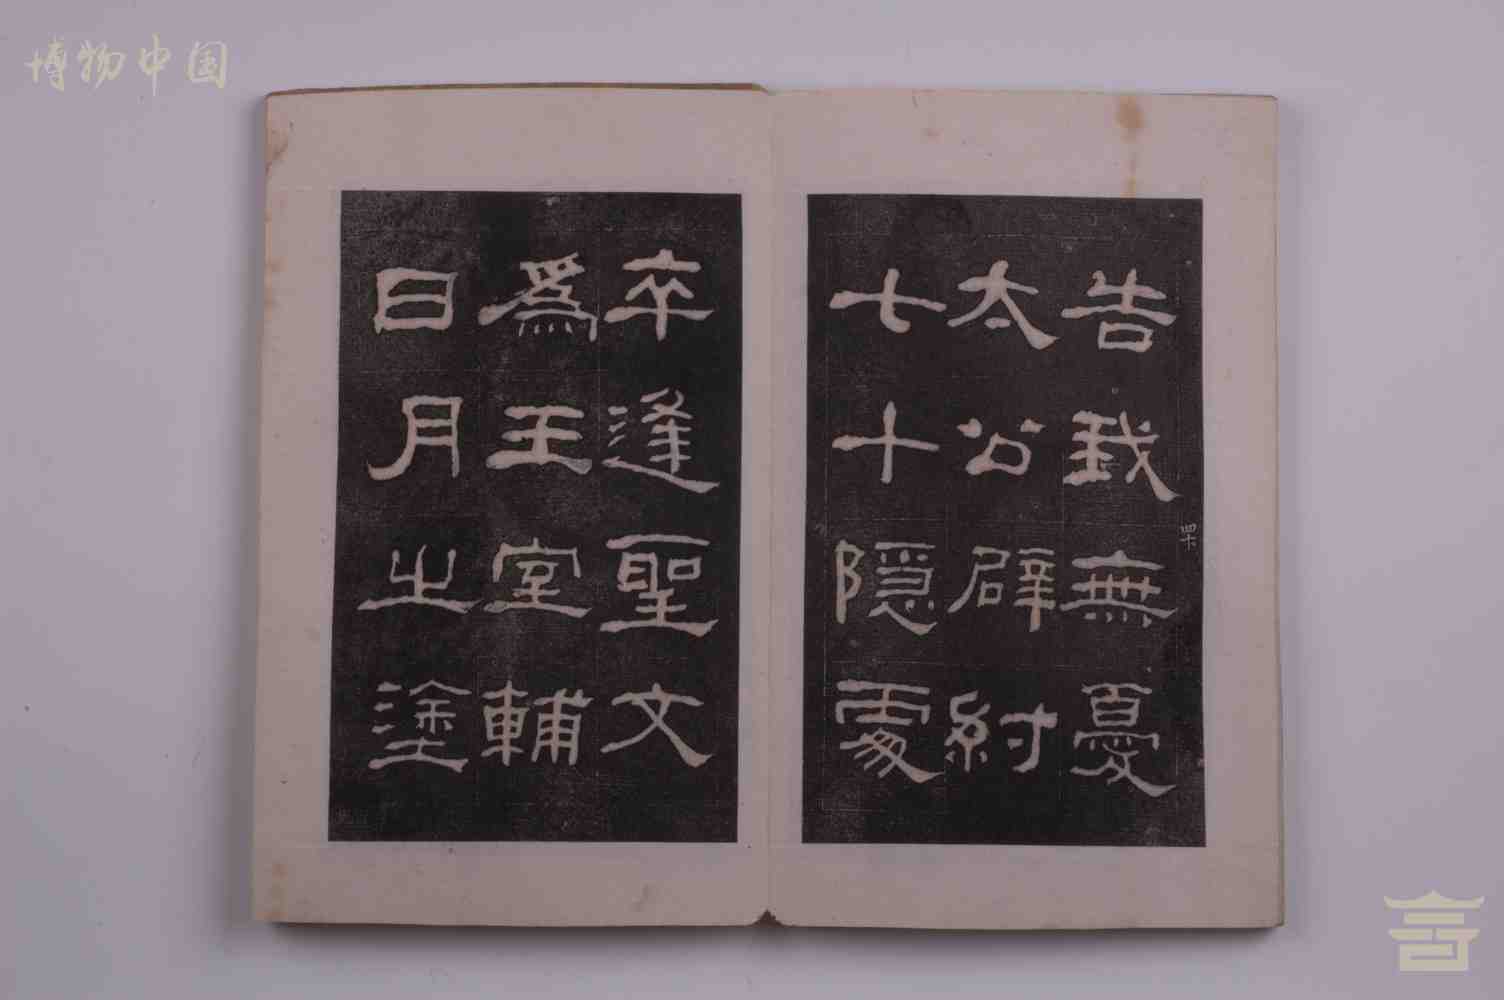 博物中国
告我無憂
太公辟紂
七十隱處
卒逢聖文
為王室輔
日月之塗